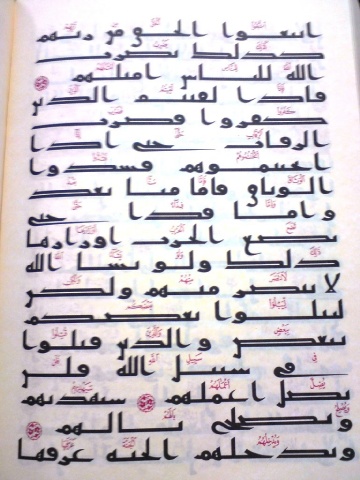 اتبعوا الحق من ربهم
كذلك يضرب
الله للناس امثلهم
فاذا لقيتم الذين
كفروا فضرب
الرقاب حتى اذا
اثخنتموهم فشدوا
الوثاق فاما منا بعد
واما فدا حتى
تضع الحرب اوزارها
ذلك ولو يشا الله
لا نتصر منهم ولكن
ليبلوا بعضكم
ببعض والذين قتلوا
في سبيل الله فلن
يضل اعملهم سيهديهم
ويصلح بالهم
ويدخلهم الجنة عرفها